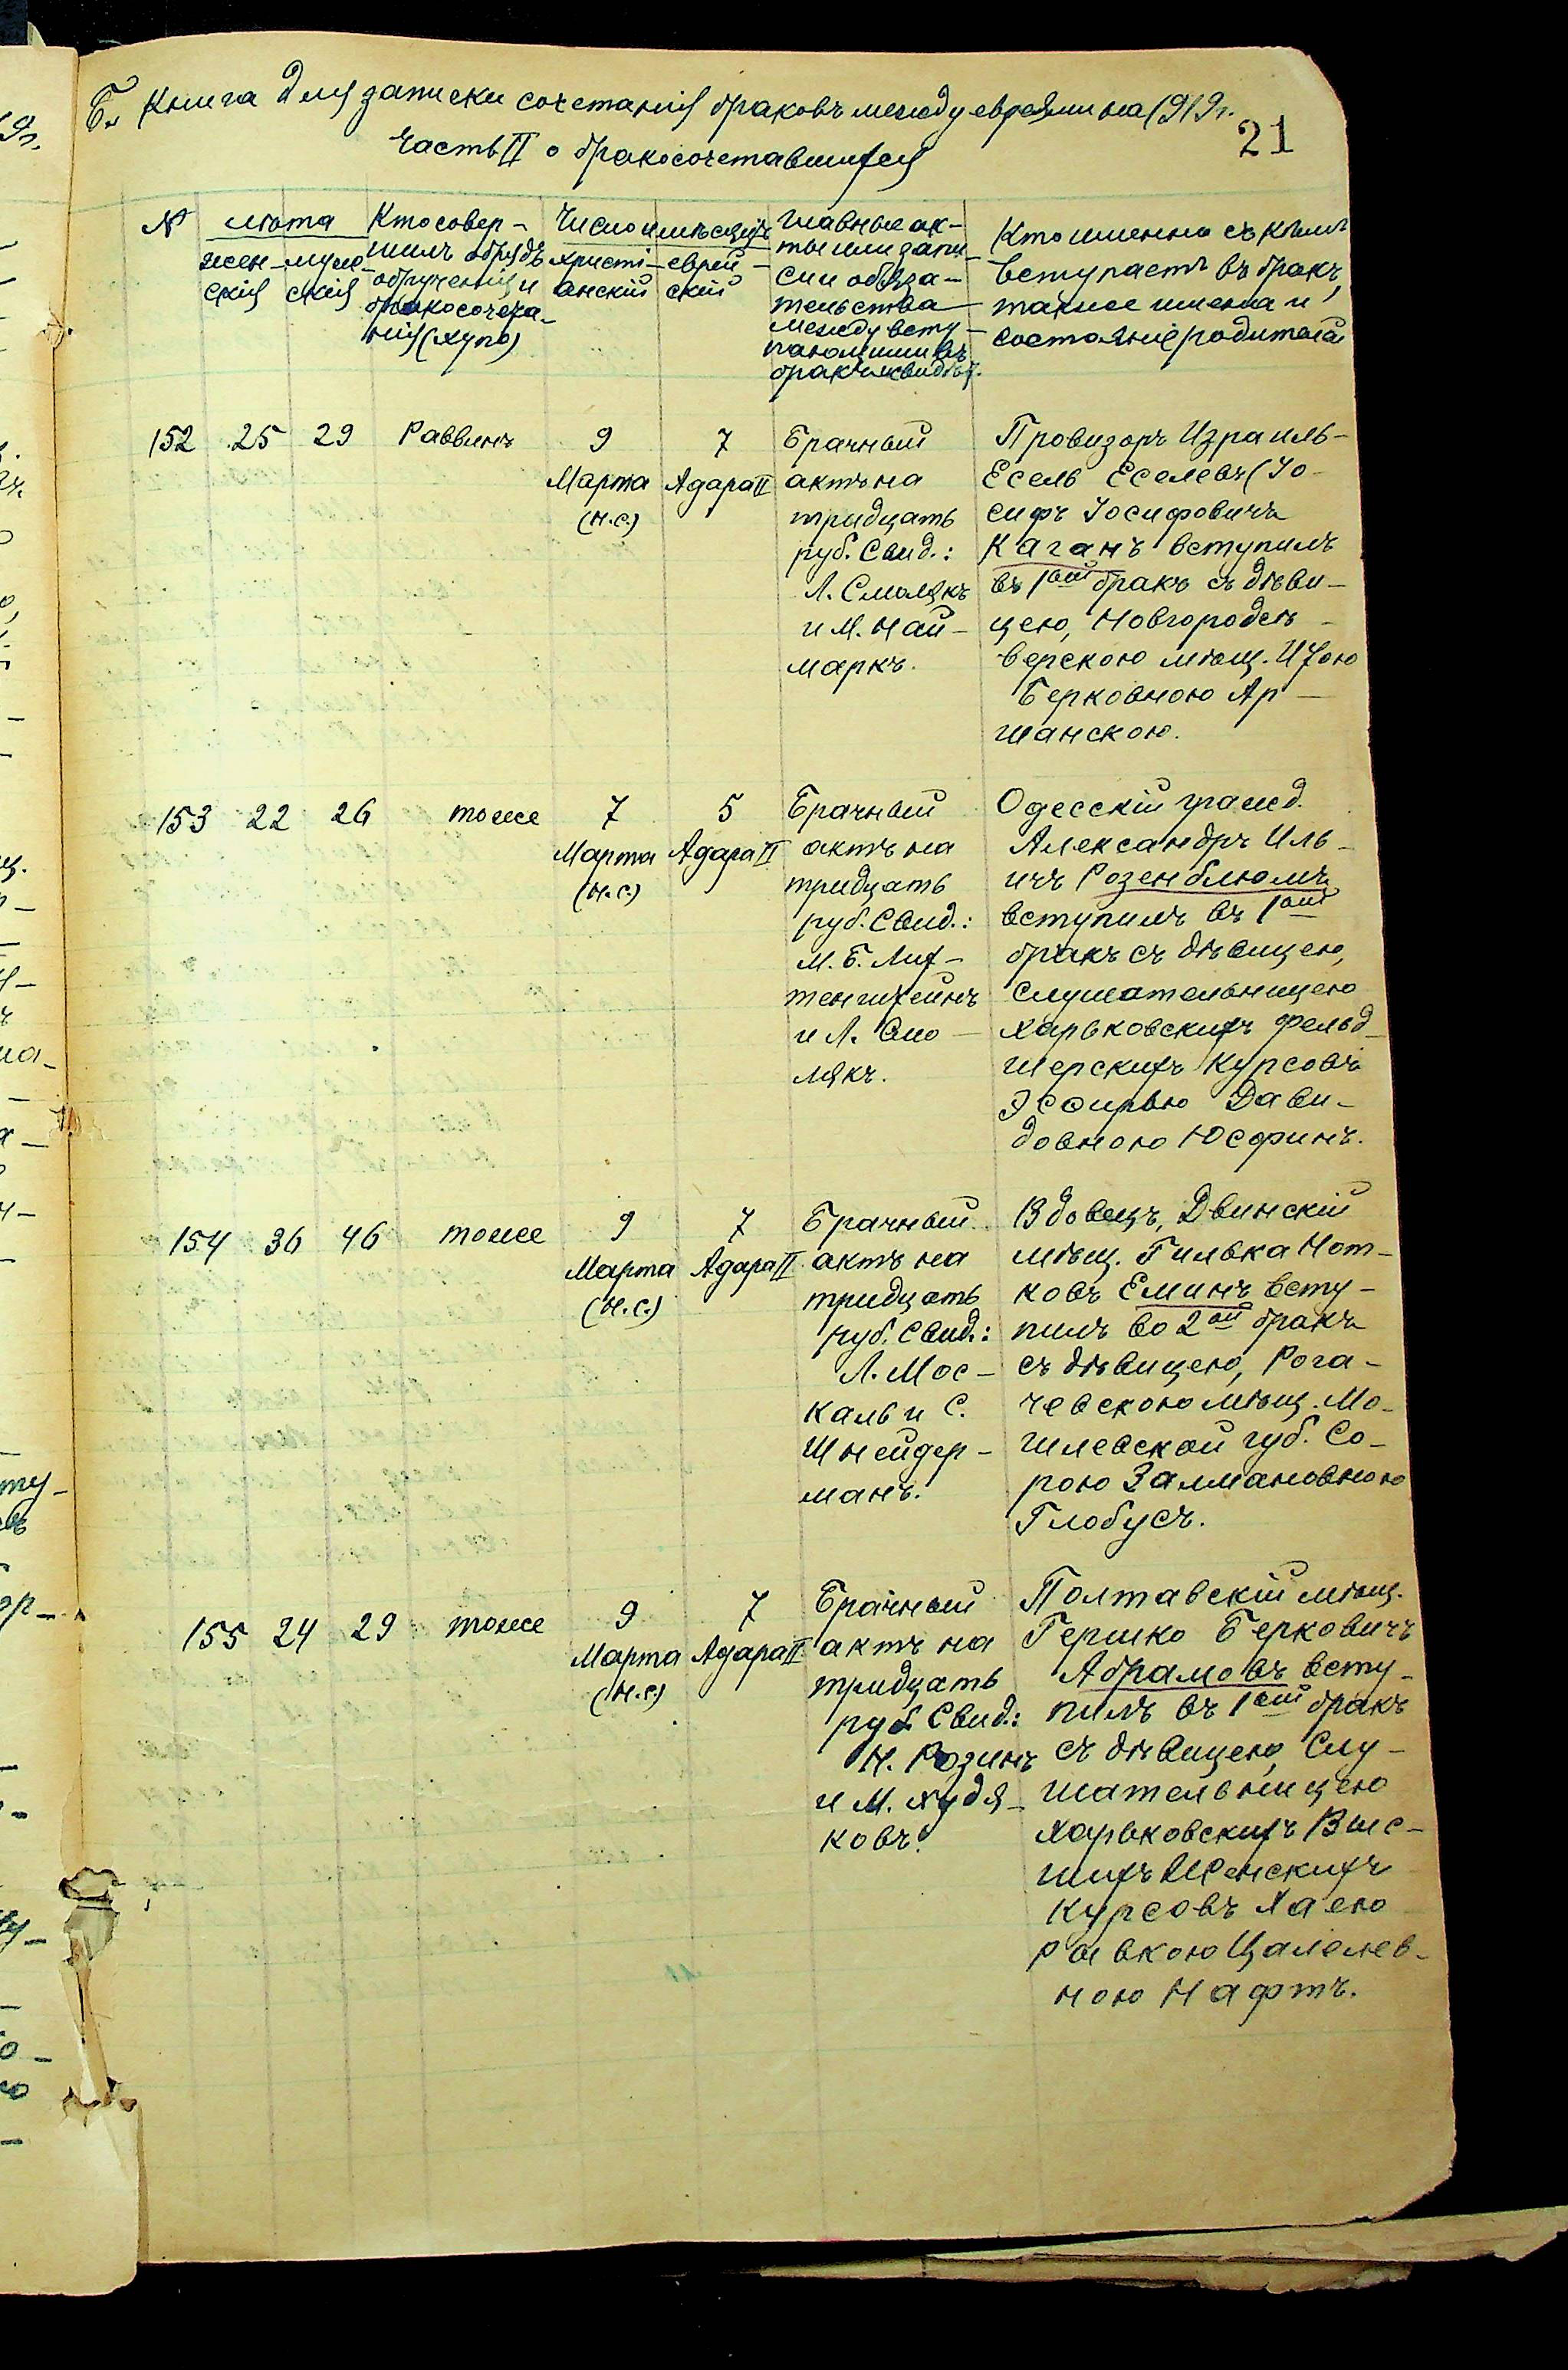 Б. Книга для записки сочетанія браковъ между евреями на 1919г.
Часть II о бракосочетавшихся
21
№
лѣта
жен-
скія
муж-
скія
Кто совер-
шилъ обрядъ
обрученія и
бракосочета-
нія (хупо)
Число и мѣсяцъ
христі-
анскій
еврей-
скій
Главные ак-
ты или запи-
си и обяза-
тельства
между всту-
пающими въ
бракъ и свидѣт.
Кто именно съ кѣмъ
вступаетъ въ бракъ,
также имена и
состояніе родителей
152 25 29 Раввинъ
9
Марта
(н.с.)
7
Адара II
Брачный
актъ на
тридцать
руб. Свид.:
Л. Смолякъ
и М. Най-
маркъ.
Провизоръ Израиль-
Есель Еселевъ (Іо-
сифъ Іосифовичъ
Каганъ вступилъ
въ 1ый бракъ съ дѣви-
цею, Новгородсѣ-
верскою мѣщ. Итою
Берковною Ар-
шанскою.
153 22 26 тоже
7
Марта
(н.с.)
5
Адара II
Брачный
актъ на
тридцать
руб. Свид.:
М. Б. Лих-
тенштейнъ
и Л. Смо-
лякъ.
Одесскій гражд.
Александръ Иль-
ичъ Розенблюмъ
вступилъ въ 1ый
бракъ съ дѣвицею,
слушательницею
Харьковскихъ Фельд-
шерскихъ Курсовъ
Эсѳирью Дави-
довною Юсфинъ.
154 36 46 тоже
9
Марта
(н.с.)
7
Адара II
Брачный
актъ на
тридцать
руб. Свид.:
Л. Мос-
каль и С.
Шнейдер-
манъ.
Вдовецъ, Двинскій
мѣщ. Гилька Нот-
ковъ Еминъ всту-
пилъ во 2ой бракъ
съ дѣвицею, Рога-
чевскою мѣщ. Мо-
гилевской губ. Со-
рою Залмановною
Глобусъ.
155 24 29 тоже
9
Марта
(н.с.)
7
Адара II
Брачный
актъ на
тридцать
руб. Свид.:
Н. Розинъ
и М. Худя-
ковъ.
Полтавскій мѣщ.
Гершко Берковичъ
Абрамовъ всту-
пилъ въ 1ый бракъ
съ дѣвицею, Слу-
шательницею
Харьковскихъ Выс-
шихъ Женскихъ
Курсовъ Хаею
Ривкою Цалелев-
ною Нафтъ.